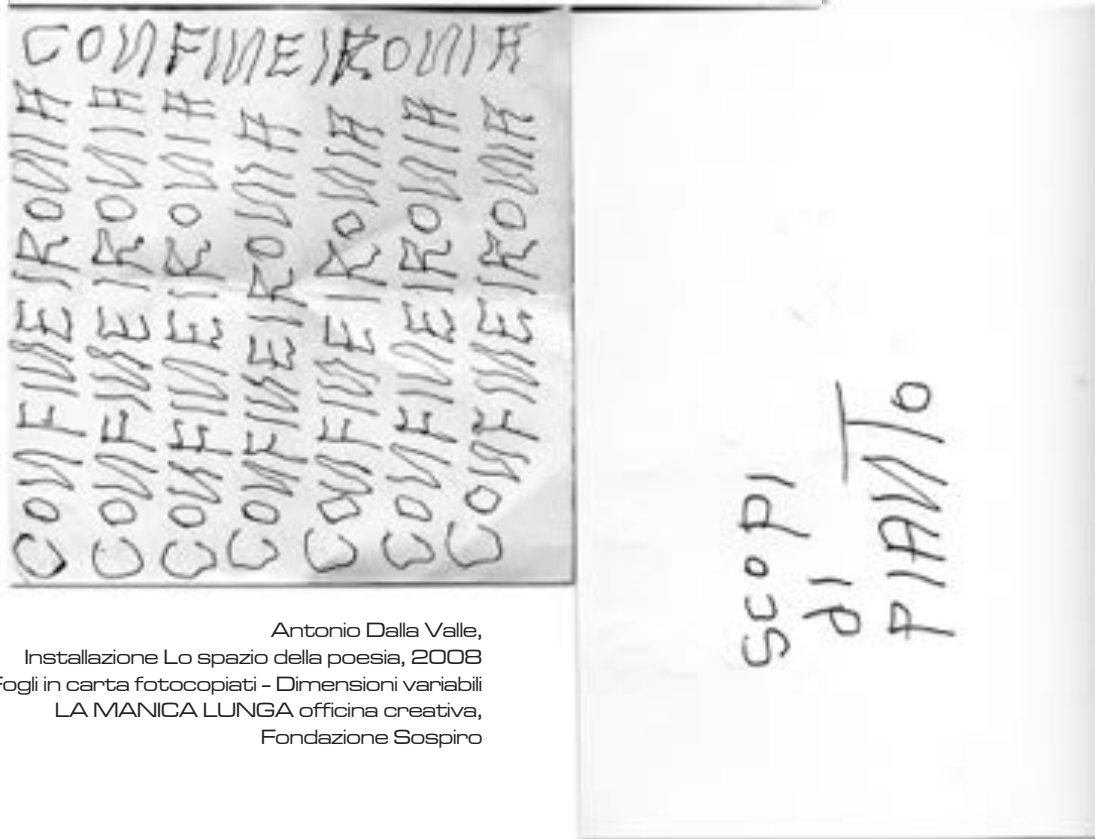 CONFINEIRONIA
CONFINEIRONIA
CONFINEIRONIA
CONFINEIRONIA
CONFINEIRONIA
CONFINEIRONIA
CONFINEIRONIA
CONFINEIRONIA
scopi
di
PIANTo
Antonio Dalla Valle,
Installazione Lo spazio della poesia, 2008
Fogli in carta fotocopiati - Dimensioni variabili
LA MANICA LUNGA officina creativa,
Fondazione Sospiro